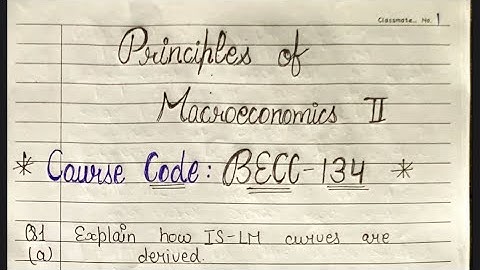 Classmate No. 1
Principles of
Macroeconomics II
* Course Code: BECC-134 *
Q1 Explain how IS-LM curves are
(a) derived.